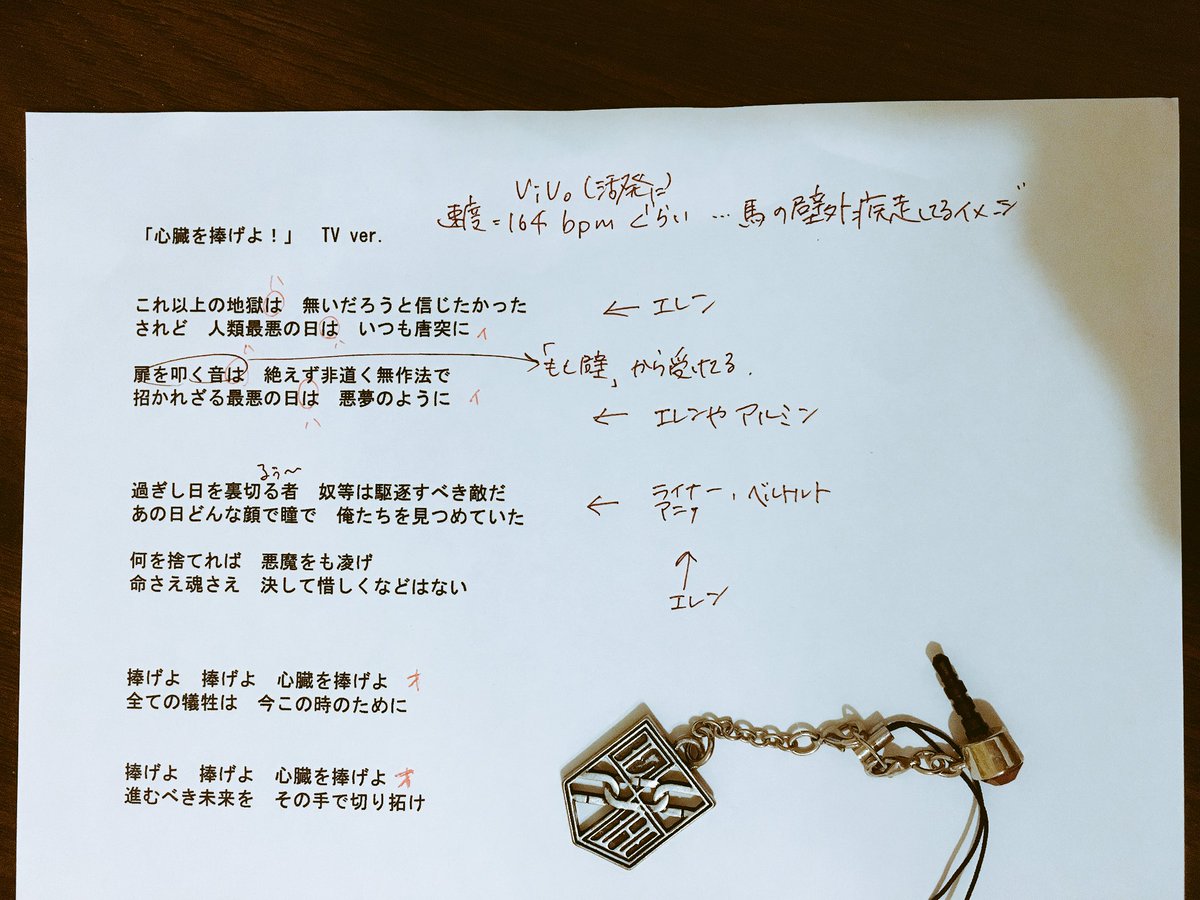 ViVo (活発に)
速度=164 bpm ぐらい … 馬の壁外疾走してるイメージ
「心臓を捧げよ!」 TV ver.
ハ
これ以上の地獄は 無いだろうと信じたかった ← エレン
されど 人類最悪の日は いつも唐突に ィ
ハ ハ
扉を叩く音は 絶えず非道く無作法で 「もし壁」から受けてる.
招かれざる最悪の日は 悪夢のように ィ
ハ
← エレンや アルミン
るぅ〜
過ぎし日を裏切る者 奴等は駆逐すべき敵だ ← ライナー, ベルトルト
あの日どんな顔で瞳で 俺たちを見つめていた アニ
何を捨てれば 悪魔をも凌げ ↑
命さえ魂さえ 決して惜しくなどはない エレン
捧げよ 捧げよ 心臓を捧げよ オ
全ての犠牲は 今この時のために
捧げよ 捧げよ 心臓を捧げよ オ
進むべき未来を その手で切り拓け